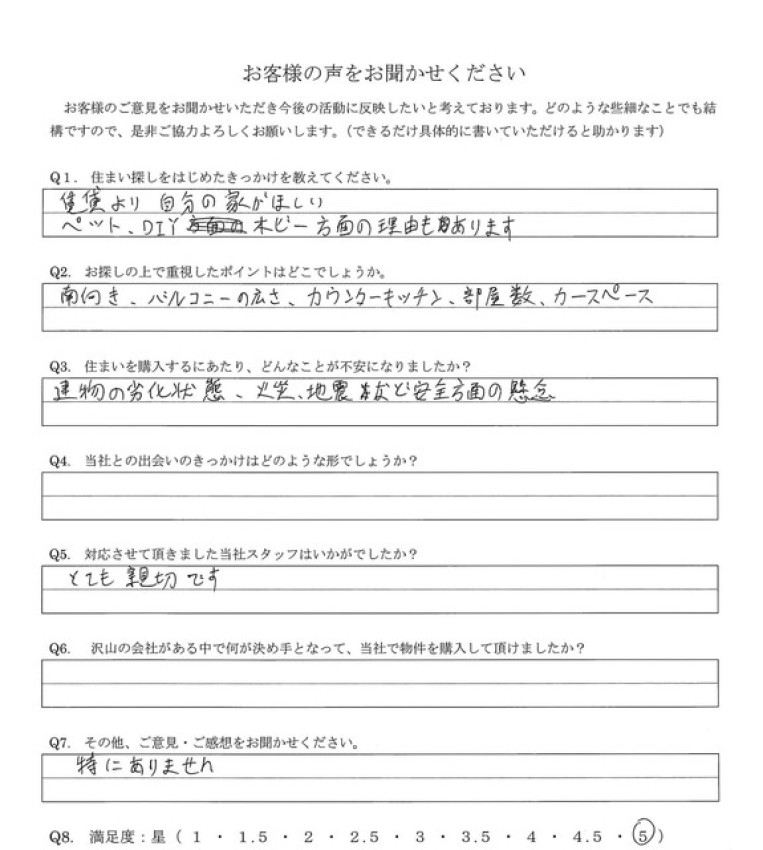 お客様の声をお聞かせください
お客様のご意見をお聞かせいただき今後の活動に反映したいと考えております。どのような些細なことでも結
構ですので、是非ご協力よろしくお願いします。（できるだけ具体的に書いていただけると助かります）
Q1. 住まい探しをはじめたきっかけを教えてください。
賃貸より 自分の家がほしい
ペット、DIY ホビー方面の理由もあります
Q2. お探しの上で重視したポイントはどこでしょうか。
南向き、バルコニーの広さ、カウンターキッチン、部屋数、カースペース
Q3. 住まいを購入するにあたり、どんなことが不安になりましたか？
建物の劣化状態、火災、地震など安全方面の懸念
Q4. 当社との出会いのきっかけはどのような形でしょうか？
Q5. 対応させて頂きました当社スタッフはいかがでしたか？
とても 親切です
Q6. 沢山の会社がある中で何が決め手となって、当社で物件を購入して頂けましたか？
Q7. その他、ご意見・ご感想をお聞かせください。
特にありません
Q8. 満足度：星（ 1 ・ 1.5 ・ 2 ・ 2.5 ・ 3 ・ 3.5 ・ 4 ・ 4.5 ・ 5 ）